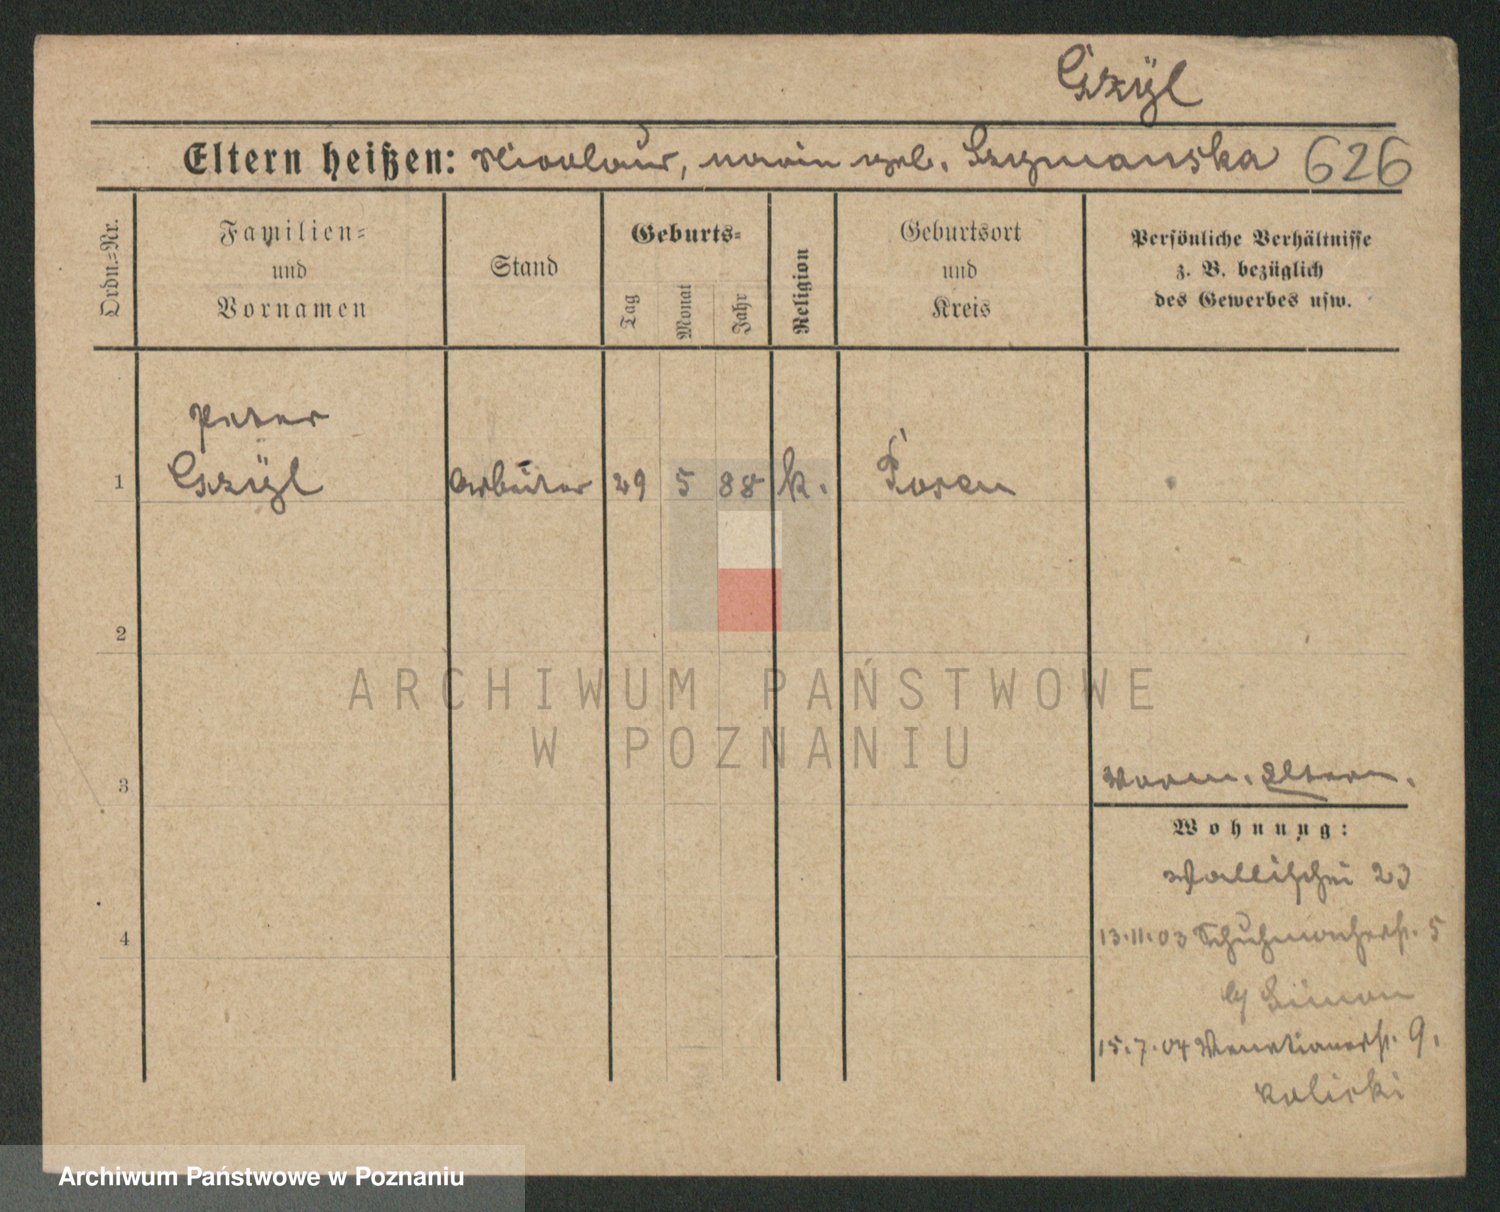 Gzyl
Eltern heißen: Nicolaus, Maria geb. Szymanska 626
Ordn.=Nr.
Familien=
und
Vornamen
Stand
Geburts=
Tag
Monat
Jahr
Religion
Geburtsort
und
Kreis
Persönliche Verhältnisse
z. B. bezüglich
des Gewerbes usw.
Peter
1 Gzÿl Arbeiter 29 5 88 k. Posen
2
ARCHIWUM PAŃSTWOWE
W POZNANIU
3
Eltern.
Wohnung:
Wallischei 23
13.11.03 Schuhmacherstr. 5
4
b/ Simon
15.7.04 Venetianerstr. 9.
Kolicki
Archiwum Państwowe w Poznaniu